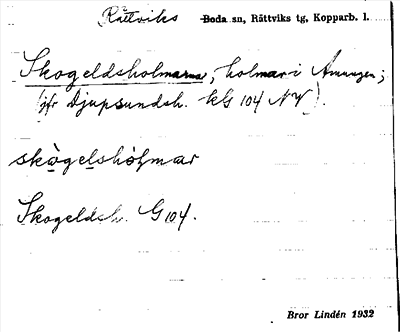 Rättviks Boda sn, Rättviks tg, Kopparb. l.
Skogeldsholmarna, holmar i Amungen;
(jfr Djupsundsh. kG 104 NV).
skògelshòlmar
Skogeldsh. G 104.
Bror Lindén 1932